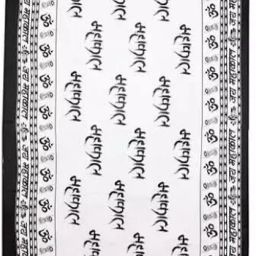 महाकाल महाकाल
महाकाल महाकाल महाकाल
महाकाल महाकाल
महाकाल महाकाल महाकाल
महाकाल महाकाल
महाकाल महाकाल महाकाल
महाकाल महाकाल
ॐ जय महाकाल ॐ जय महाकाल
ॐ जय महाकाल ॐ जय महाकाल